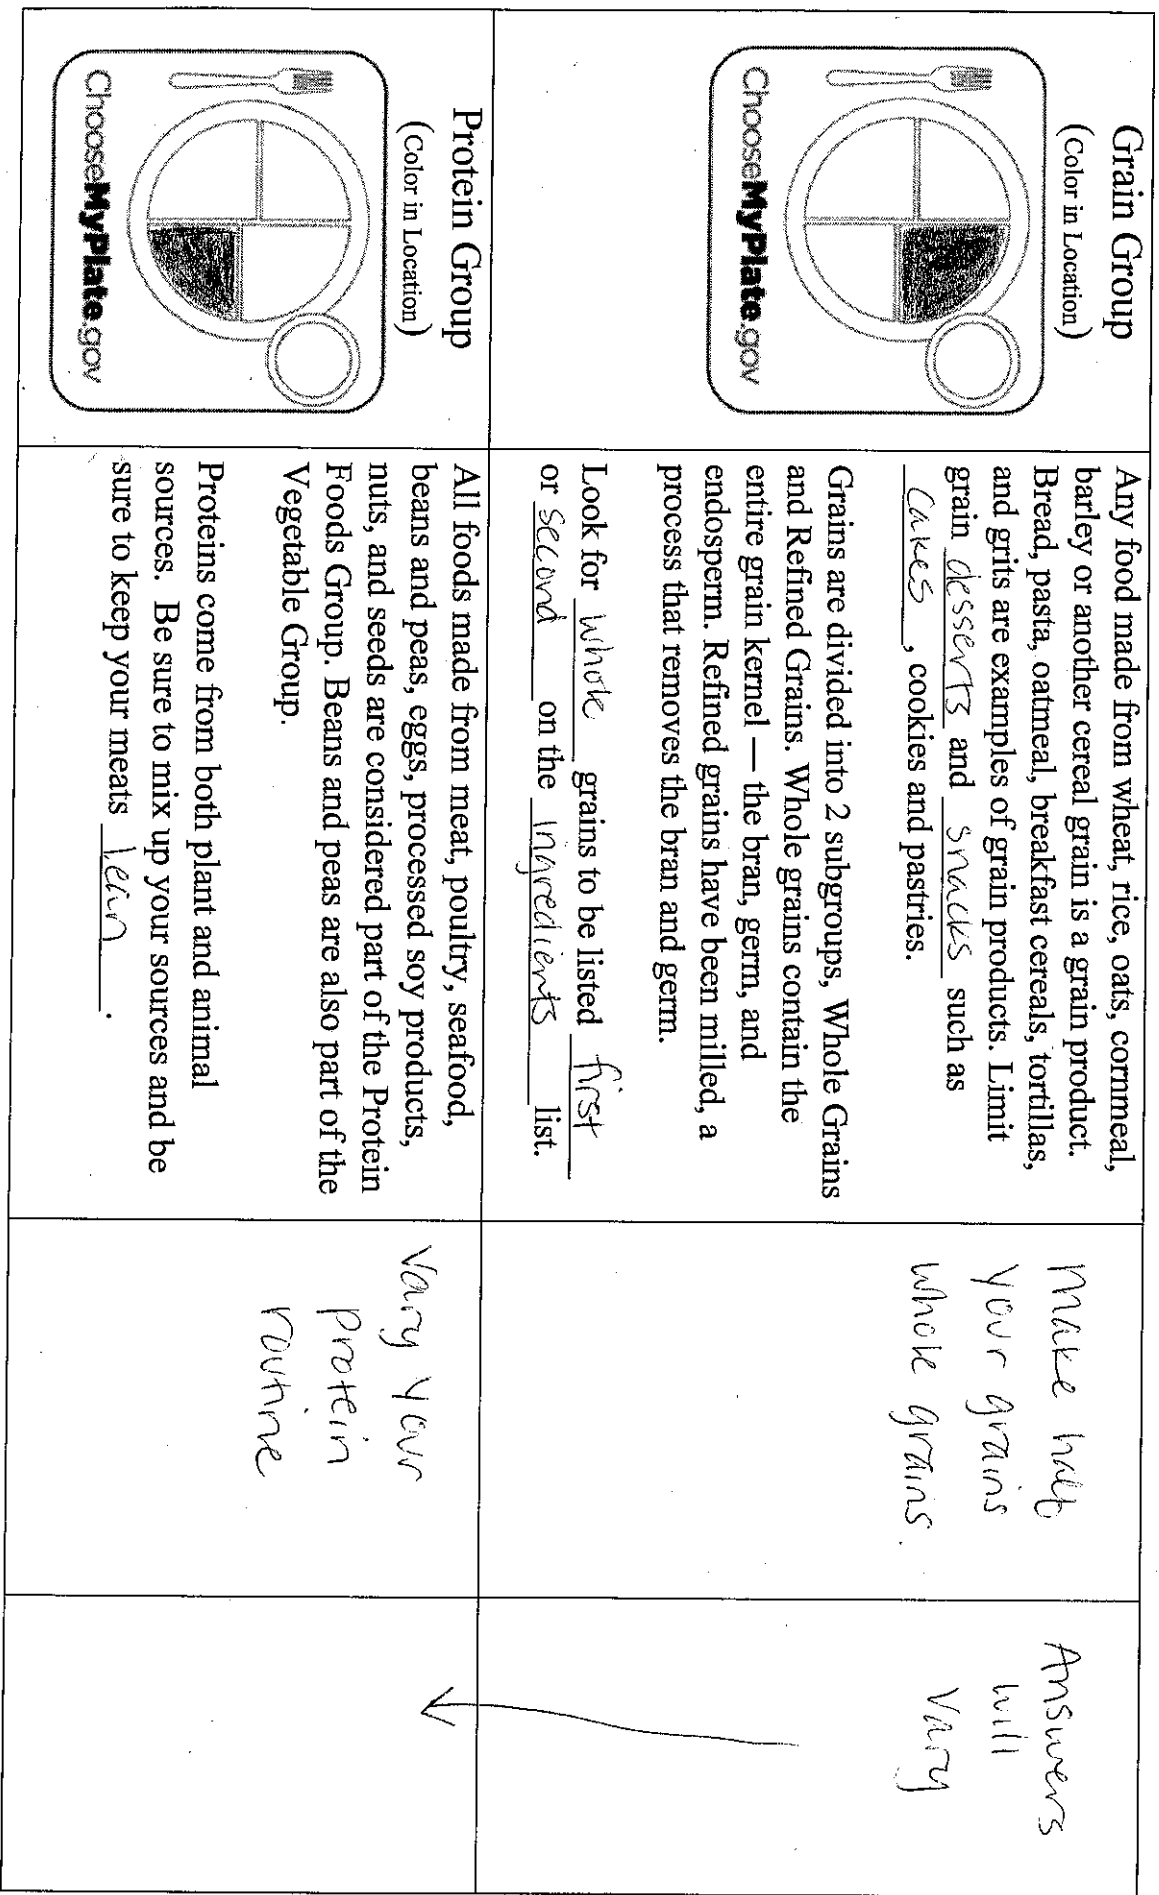 Grain Group
(Color in Location)
ChooseMyPlate.gov
Any food made from wheat, rice, oats, cornmeal,
barley or another cereal grain is a grain product.
Bread, pasta, oatmeal, breakfast cereals, tortillas,
and grits are examples of grain products. Limit
grain desserts and snacks such as
cakes, cookies and pastries.
Grains are divided into 2 subgroups, Whole Grains
and Refined Grains. Whole grains contain the
entire grain kernel — the bran, germ, and
endosperm. Refined grains have been milled, a
process that removes the bran and germ.
Look for whole grains to be listed first
or second on the ingredients list.
Make half
your grains
whole grains.
Answers
will
vary
Protein Group
(Color in Location)
ChooseMyPlate.gov
All foods made from meat, poultry, seafood,
beans and peas, eggs, processed soy products,
nuts, and seeds are considered part of the Protein
Foods Group. Beans and peas are also part of the
Vegetable Group.
Proteins come from both plant and animal
sources. Be sure to mix up your sources and be
sure to keep your meats lean.
Vary your
protein
routine